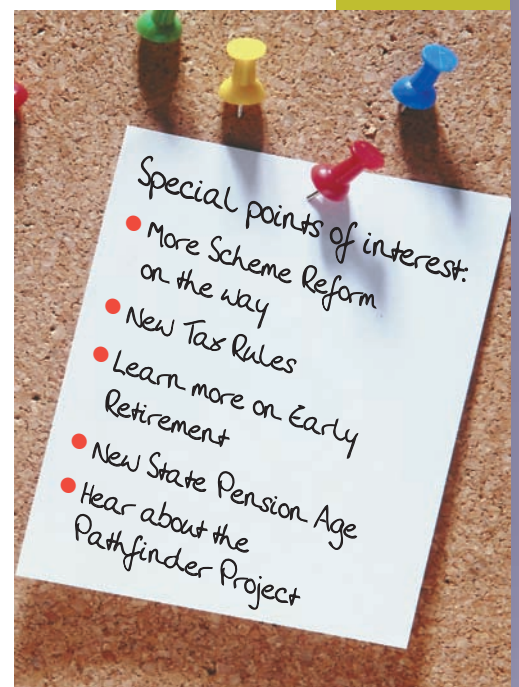 Special points of interest:
• More Scheme Reform
on the way
• New Tax Rules
• Learn more on Early
Retirement
• New State Pension Age
• Hear about the
Pathfinder Project